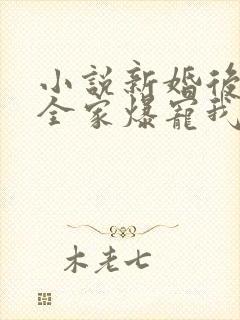 小說新婚後
全家爆寵我
木老七